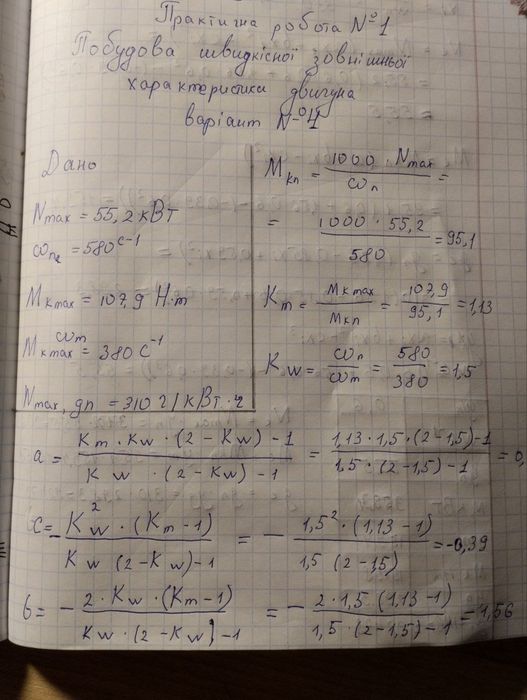 Практична робота №1
Побудова швидкісної зовнішньої
характеристики двигуна
варіант №4
Дано
Nmax = 55,2 кВт
ωne = 580 c⁻¹
Mкmax = 107,9 Н·m
ωm
Mкmax = 380 C⁻¹
Nmax, gn = 310 г/кВт·ч
Mкn = 1000 · Nmax / ωn =
= 1000 · 55,2 / 580 = 95,1
Km = Mкmax / Mкn = 107,9 / 95,1 = 1,13
Kω = ωn / ωm = 580 / 380 = 1,5
a = Km · Kw · (2 - Kw) - 1 / Kw · (2 - Kw) - 1 = 1,13 · 1,5 · (2 - 1,5) - 1 / 1,5 · (2 - 1,5) - 1 = 0,
C = - Kw² · (Km - 1) / Kw (2 - Kw) - 1 = - 1,5² · (1,13 - 1) / 1,5 (2 - 1,5) = -0,39
b = - 2 · Kw · (Km - 1) / Kw · (2 - Kw) - 1 = - 2 · 1,5 (1,13 - 1) / 1,5 · (2 - 1,5) - 1 = 1,56